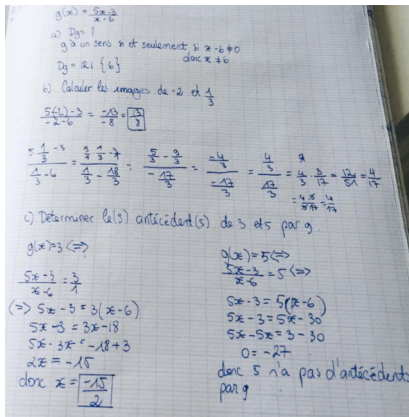 g(x) = (5x-3)/(x-6)
a) Dg = ?
g a un sens si et seulement si x-6≠0
donc x ≠ 6
Dg = IR \ {6}
b) Calculer les images de -2 et 1/3
(5(-2)-3)/(-2-6) = -13/-8 = 13/8
(5·1/3 - 3)/(1/3 - 6) = (5/3 - 9/3)/(-17/3) = (-4/3)/(-17/3) = (4/3)/(17/3) = 4/3 · 3/17 = 12/51 = 4/17
c) Déterminer le(s) antécédent(s) de 3 et 5 par g.
g(x)=3 <=>
(5x-3)/(x-6) = 3/1
(=) 5x-3 = 3(x-6)
5x-3 = 3x-18
5x-3x = -18+3
2x = -15
donc x = -15/2
g(x)=5 <=>
(5x-3)/(x-6) = 5 <=>
5x-3 = 5(x-6)
5x-3 = 5x-30
5x-5x = 3-30
0 = -27
donc 5 n'a pas d'antécédents
par g